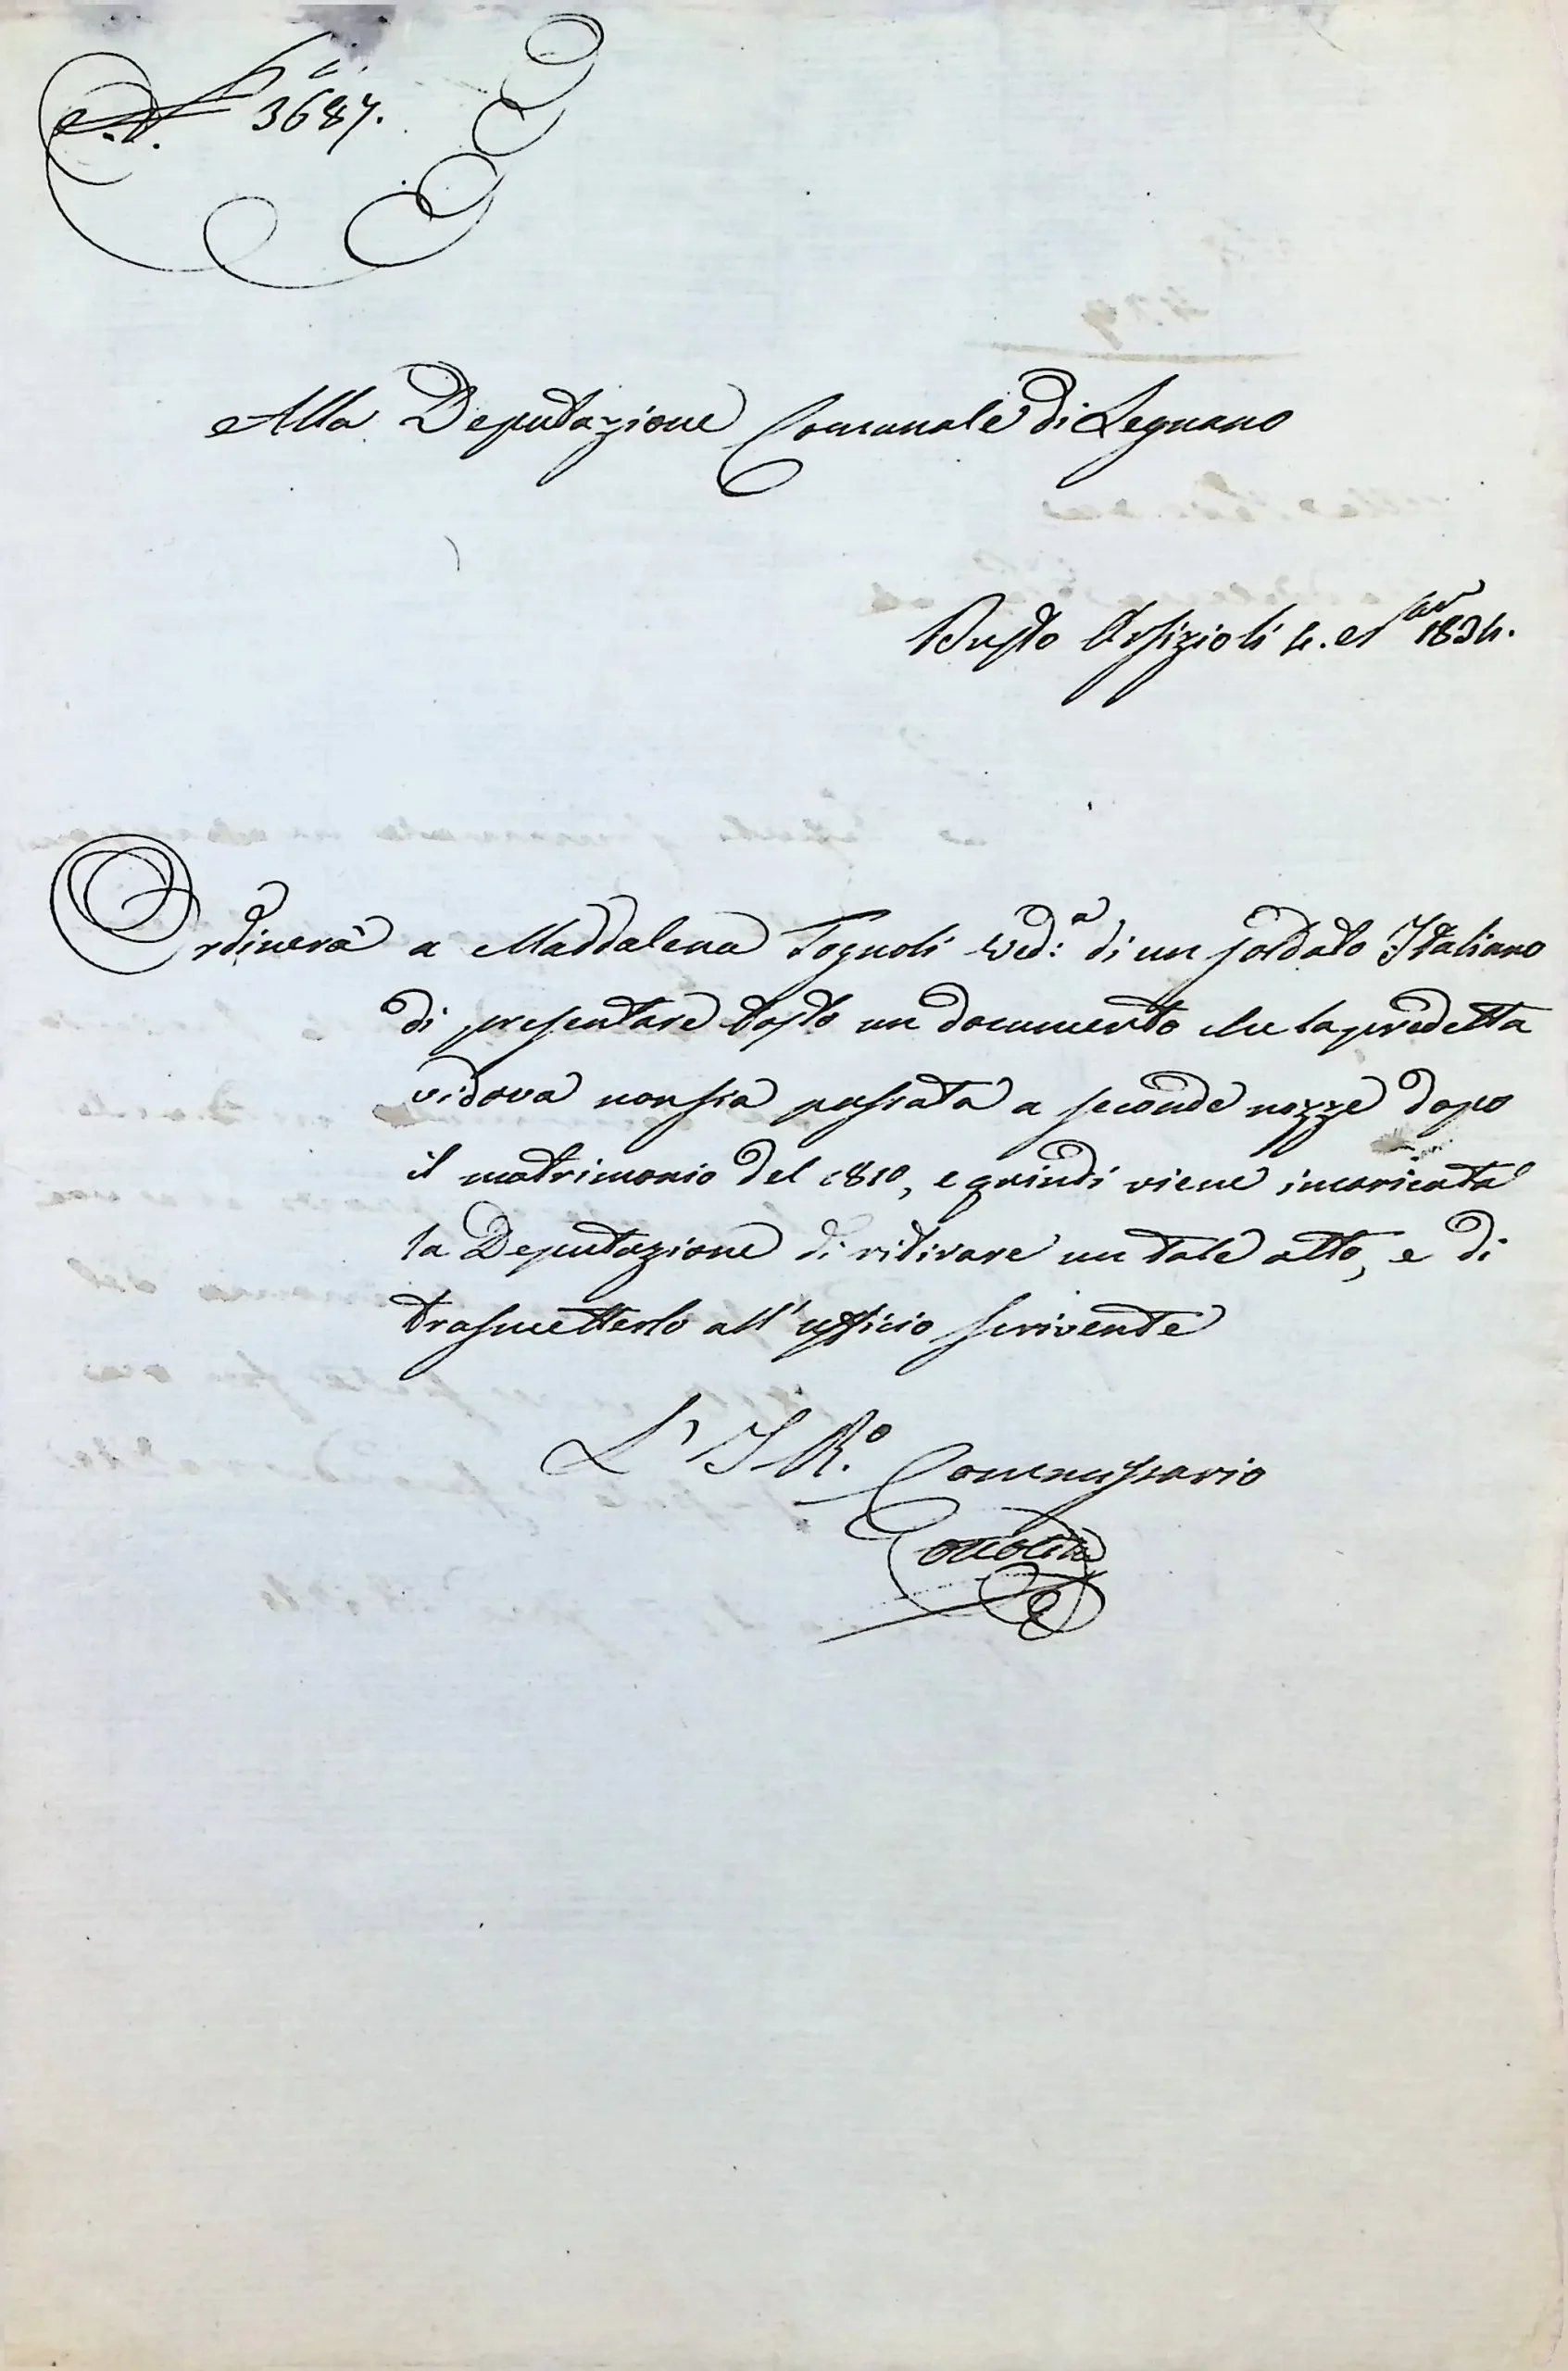 N.º 3687.
Alla Deputazione Comunale di Legnano
Busto Arsizio li 4. 1834.
Ordinerà a Maddalena Tognoli Ved:ª di un soldato Italiano
di presentare tosto un documento che la predetta
vedova non sia passata a seconde nozze dopo
il matrimonio del 1810, e quindi viene incaricata
la Deputazione di ritirare un tale atto, e di
trasmetterlo all'ufficio scrivente
L' I R.º Commissario